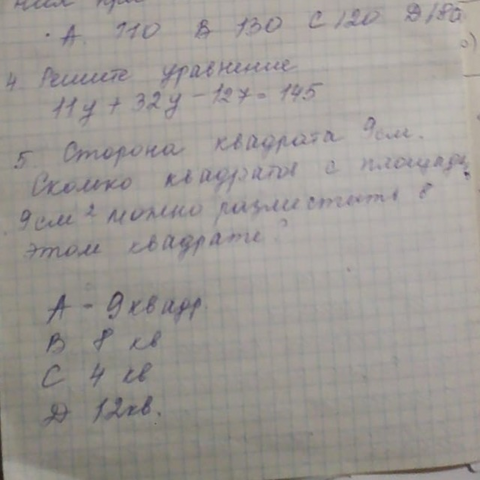 А. 110 В 130 С 120 D 180
4. Решите уравнение
11у + 32у - 127 = 145
5. Сторона квадрата 9см.
Сколько квадратов с площадью
9см² можно разместить в
этом квадрате?
А - 9 квадр.
В 8 кв
С 4 кв
Д 12кв.